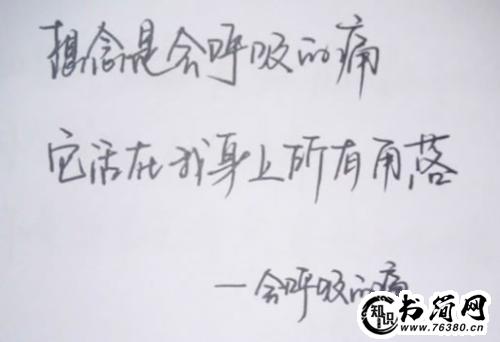 想念是会呼吸的痛
它活在我身上所有角落
一会呼吸的痛
知识
书简网
www.76380.cn